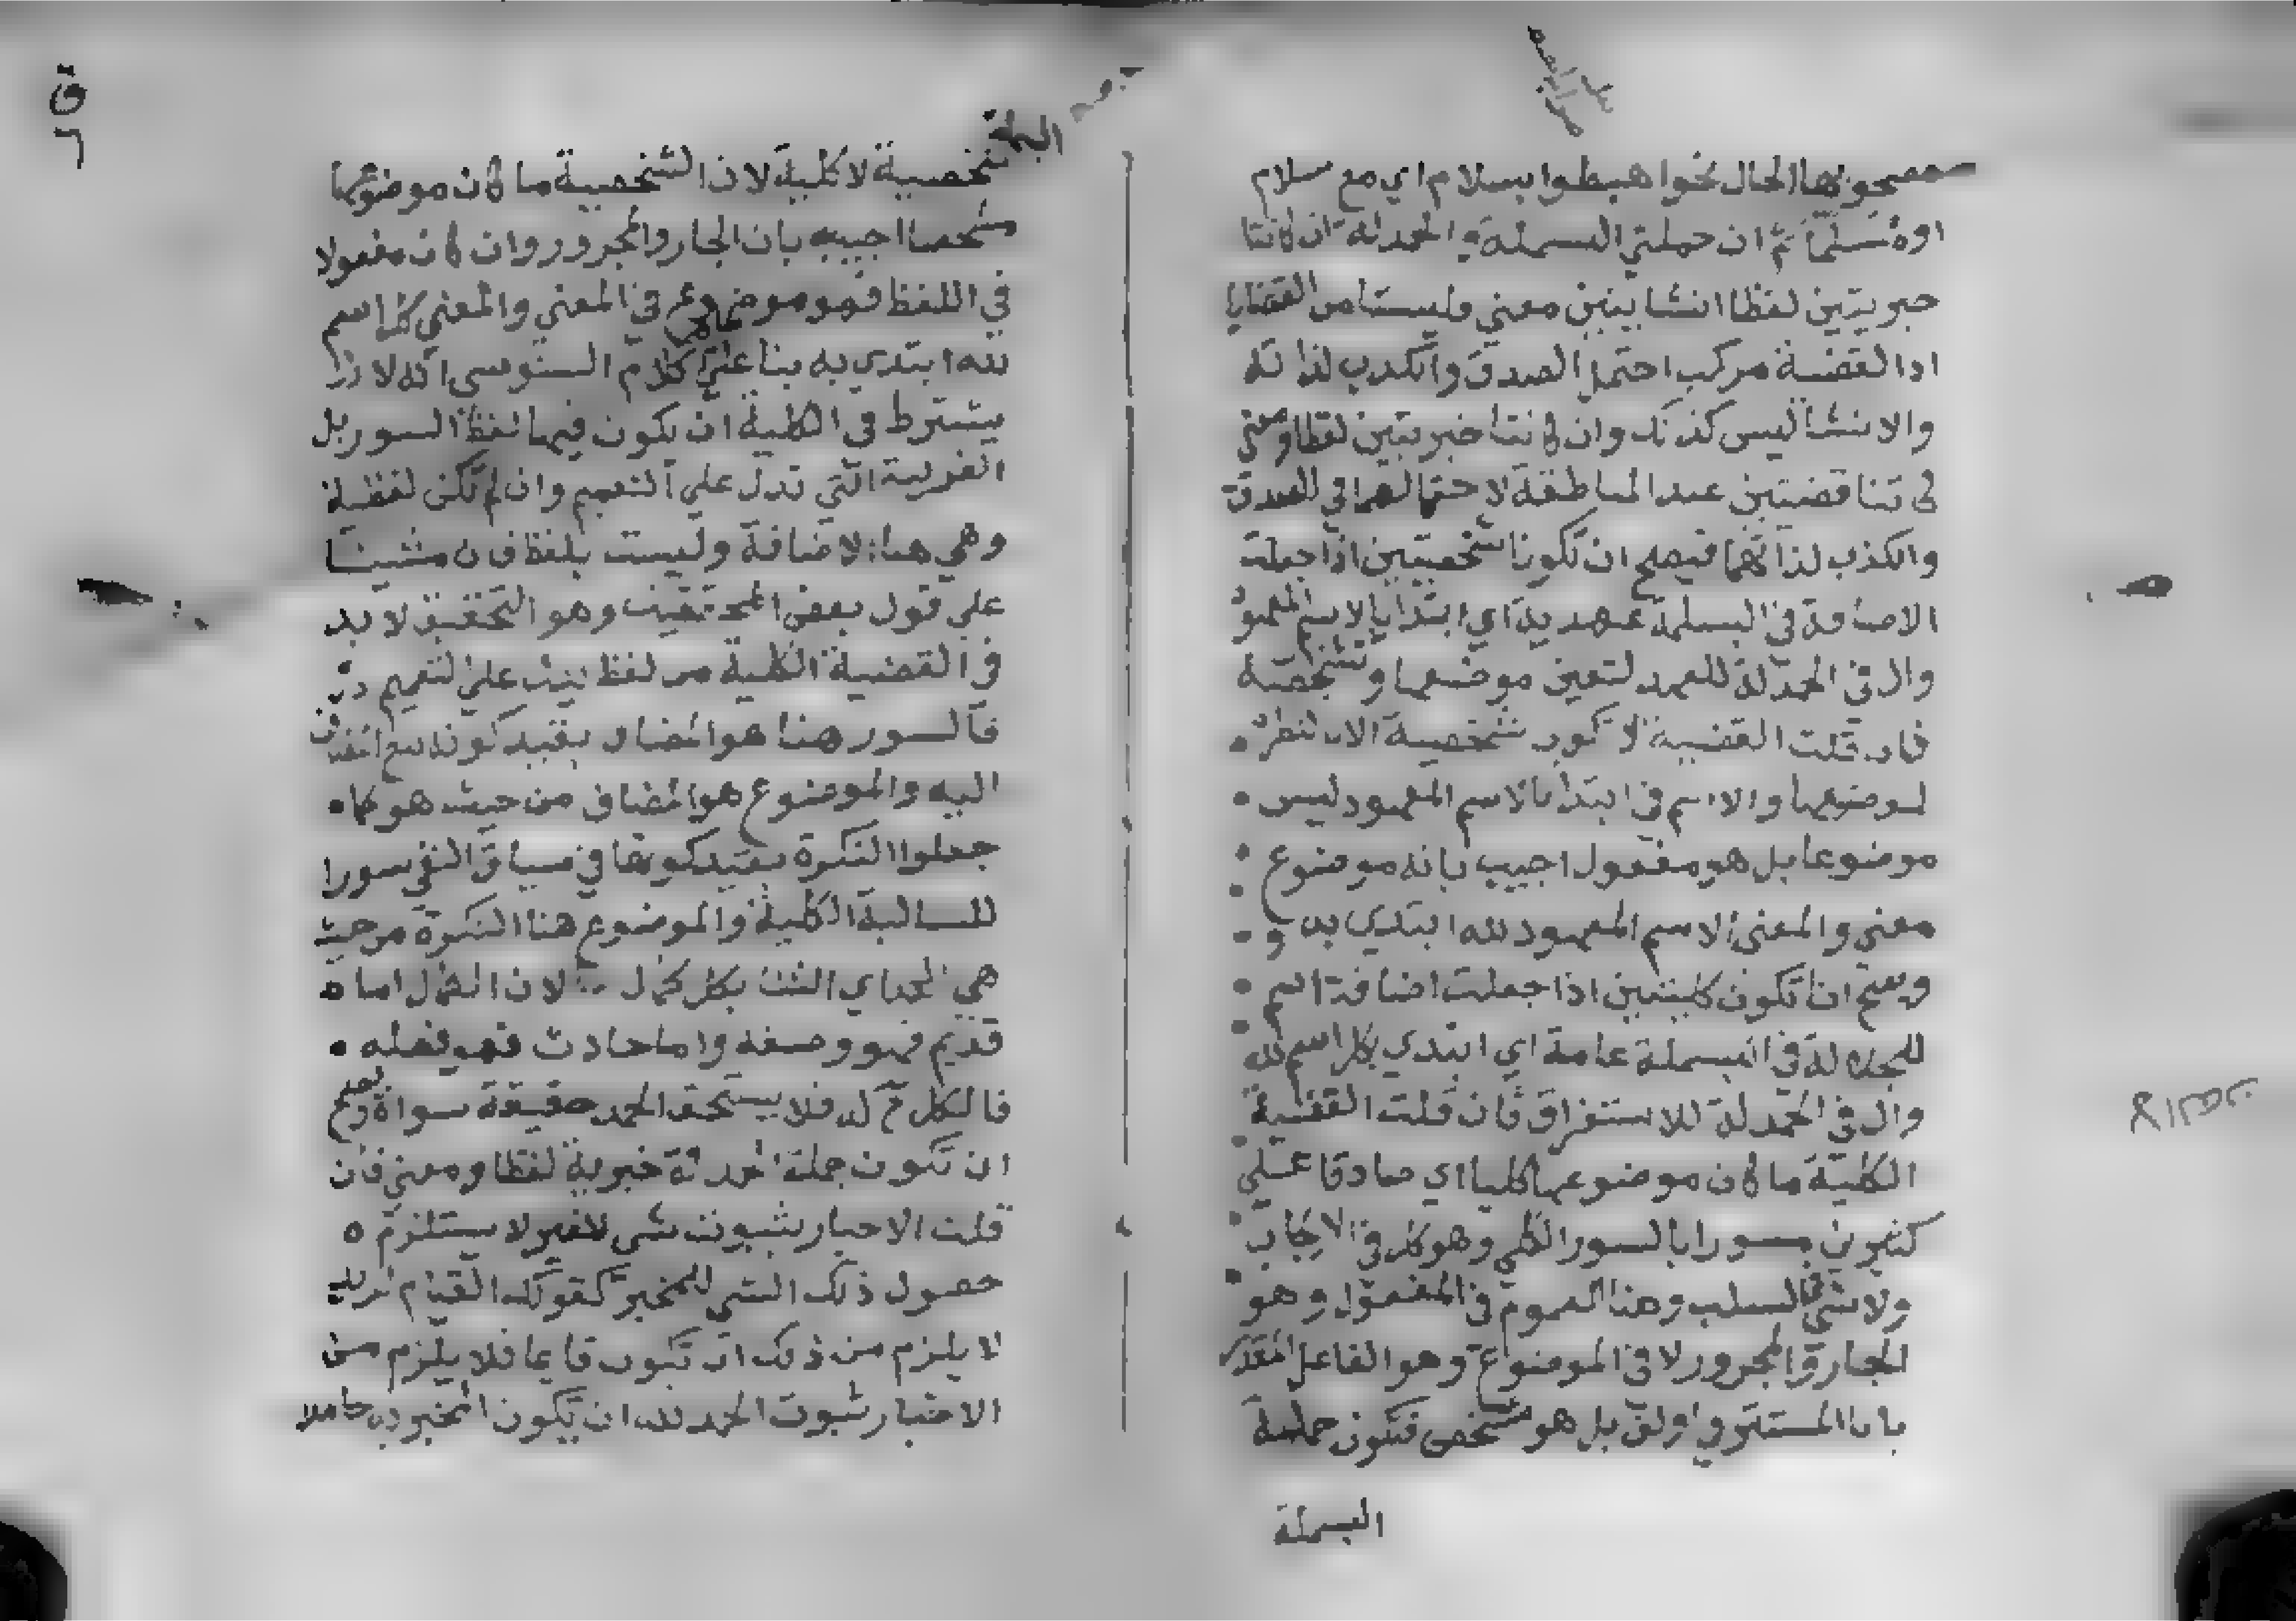 مصحوبها الحال نحوا هبطوا بسلام اي مع سلام
او مسلما ثم ان جملتي البسملة والحمدلة ان كانتا
خبريتين لفظا انشايتين معني وليستا من القضايا
اذ القضية مركب احتمل الصدق والكذب لذاته
والانشا ليس كذلك وان كانتا خبريتين لفظا ومعني
كانتا قضيتين عند المناطقة لاحتمالهما في الصدق
والكذب لذاتهما فيصح ان تكونا شخصيتين اذا جعلت
الاضافة في البسملة عهدية اي ابتدا بالاسم المعهود
وال في الحمدلة للعهد لتعين موضعها وتشخصه
فان قلت القضية لا تكون شخصية الا بالنظر
لموضوعها والاسم في ابتدا بالاسم المعهود ليس
موضوعا بل هو مفعول اجيب بانه موضوع
معني والمعني الاسم المعهود لله ابتدي به و
ويصح ان تكون كليتين اذا جعلت اضافة اسم
للجلالة في البسملة عامة اي ابتدي بكل اسم لله
وال في الحمدلة للاستغراق فان قلت القضية
الكلية ما كان موضوعها كليا اي صادقا علي
كثيرين مسورا بالسور الكلي وهو كل في الايجاب
ولا شي في السلب وهنا العموم في المفعول وهو
الجار والمجرور لا في الموضوع وهو الفاعل المقدر
بانا المستتر في اولف بل هو مشخص فتكون جملة
البسملة
شخصية لا كلية لان الشخصية ما كان موضوعها
مشخصا اجيب بان الجار والمجرور وان كان مفعولا
في اللفظ فهو موضوع في المعني والمعني كل اسم
لله ابتدي به بنا علي كلام السنوسي انه لا
يشترط في الكلية ان يكون فيها لفظ السور بل
القرينة التي تدل علي التعميم وان لم تكن لفظية
وهي هنا الاضافة وليست بلفظ فان مشينا
علي قول بعض المحققين وهو التحقيق لا بد
في القضية الكلية من لفظ ينبئ علي التعميم
فالسور هنا هو المضاف بقيد كونه مع المضاف
اليه والموضوع هو المضاف من حيث هو كما
جعلوا النكرة بقيد كونها في سياق النفي سورا
للسالبة الكلية والموضوع هنا النكرة من حيث
هي الحمد اي الثنا بكل كمال لان الكمال اما
قديم فهو وصفه واما حادث فهو فعله
فالكل له فلا يستحق الحمد حقيقة سواه ويصح
ان تكون جملة الحمدلة خبرية لفظا ومعني فان
قلت الاخبار بثبوت شي لا
لغير لا يستلزم
حصول ذلك الشي للمخبر كقولك القيام لزيد
لا يلزم من ذلك ان تكون قايما فلا يلزم من
الاخبار بثبوت الحمد لله ان يكون المخبر به حامدا